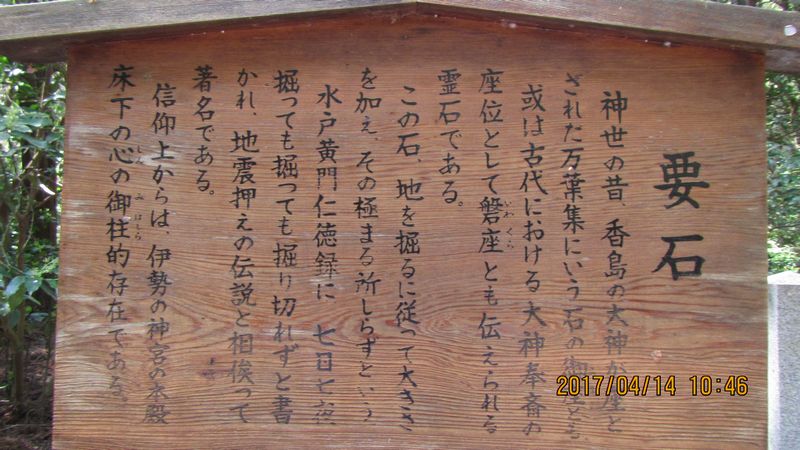 要石
神世の昔、香島の大神が座と
された万葉集にいう石の御座とも
或は古代における大神奉斎の
座位として磐座とも伝えられる
いわくら
霊石である。
この石、地を掘るに従って大きさ
を加え、その極まる所しらずという
水戸黄門仁徳録に 七日七夜
掘っても掘っても掘り切れずと書
かれ、地震押えの伝説と相俟って
著名である。
信仰上からは、伊勢の神宮の本殿
しん みはしら
床下の心の御柱的存在である。
2017/04/14 10:46